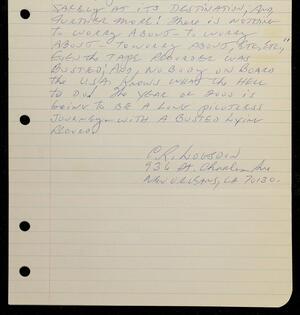 SAFELY AT ITS DESTINATION, AND
FURTHER MORE! THERE IS NOTHING
TO WORRY ABOUT - TO WORRY
ABOUT - TO WORRY ABOUT, ETC, ETC,"
EVEN THE TAPE RECORDER WAS
BUSTED, AND, NO BODY ON BOARD
THE U.S.A. KNOWS WHAT THE HELL
TO DO. THE YEAR OF 2000 IS
GOING TO BE A LONG PILOTLESS
JOURNEY - WITH A BUSTED LYING
RECORD.
C.R.
936 St. Charles Ave
NEW ORLEANS, LA 70130.